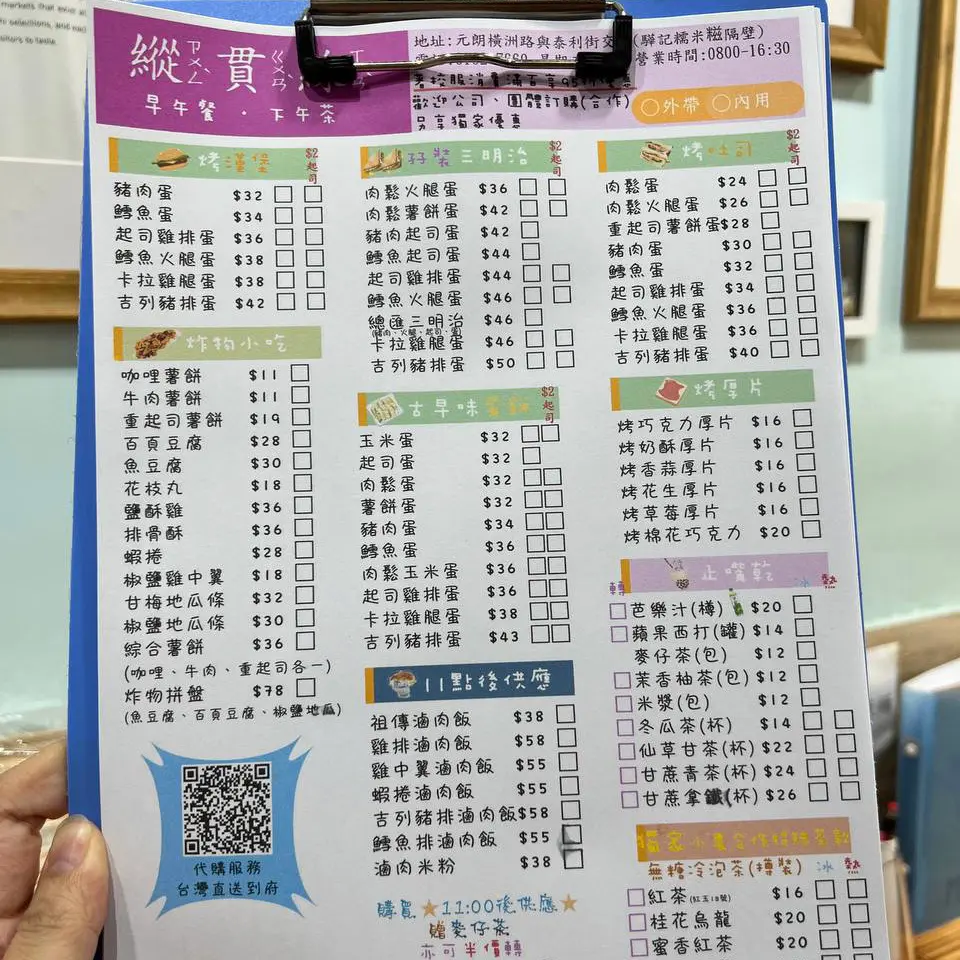 縱ㄗㄨㄥˋ貫ㄍㄨㄢˋ
早午餐 · 下午茶
地址: 元朗橫洲路與泰利街交 (驊記糯米糍隔壁)
營業時間:0800-16:30
着校服消費滿百享95折優惠
歡迎公司、團體訂購(合作)
另享獨家優惠
○外帶 ○內用
烤漢堡 $2起司
豬肉蛋 $32
鱈魚蛋 $34
起司雞排蛋 $36
鱈魚火腿蛋 $38
卡拉雞腿蛋 $38
吉列豬排蛋 $42
炸物小吃
咖哩薯餅 $11
牛肉薯餅 $11
重起司薯餅 $19
百頁豆腐 $28
魚豆腐 $30
花枝丸 $18
鹽酥雞 $36
排骨酥 $36
蝦捲 $28
椒鹽雞中翼 $18
甘梅地瓜條 $32
椒鹽地瓜條 $30
綜合薯餅 $36
(咖哩、牛肉、重起司各一)
炸物拼盤 $78
(魚豆腐、百頁豆腐、椒鹽地瓜)
代購服務
台灣直送到府
孖裝三明治 $2起司
肉鬆火腿蛋 $36
肉鬆薯餅蛋 $42
豬肉起司蛋 $42
鱈魚起司蛋 $44
起司雞排蛋 $44
鱈魚火腿蛋 $46
總匯三明治 $46
(豬肉、火腿、起司、蛋)
卡拉雞腿蛋 $46
吉列豬排蛋 $50
古早味蛋餅 $2起司
玉米蛋 $32
起司蛋 $32
肉鬆蛋 $32
薯餅蛋 $32
豬肉蛋 $34
鱈魚蛋 $36
肉鬆玉米蛋 $36
起司雞排蛋 $36
卡拉雞腿蛋 $38
吉列豬排蛋 $43
11點後供應
祖傳滷肉飯 $38
雞排滷肉飯 $58
雞中翼滷肉飯 $55
蝦捲滷肉飯 $55
吉列豬排滷肉飯 $58
鱈魚排滷肉飯 $55
滷肉米粉 $38
購買★11:00後供應★
贈麥仔茶
亦可半價轉
烤吐司 $2起司
肉鬆蛋 $24
肉鬆火腿蛋 $26
重起司薯餅蛋 $28
豬肉蛋 $30
鱈魚蛋 $32
起司雞排蛋 $34
鱈魚火腿蛋 $36
卡拉雞腿蛋 $36
吉列豬排蛋 $40
烤厚片
烤巧克力厚片 $16
烤奶酥厚片 $16
烤香蒜厚片 $16
烤花生厚片 $16
烤草莓厚片 $16
烤棉花巧克力 $20
轉 止嘴乾 冰 熱
芭樂汁(樽) $20
蘋果西打(罐) $14
麥仔茶(包) $12
茉香柚茶(包) $12
米漿(包) $12
冬瓜茶(杯) $14
仙草甘茶(杯) $22
甘蔗青茶(杯) $24
甘蔗拿鐵(杯) $26
無糖冷泡茶(樽裝) 冰 熱
紅茶(紅玉18號) $16
桂花烏龍 $20
蜜香紅茶 $20